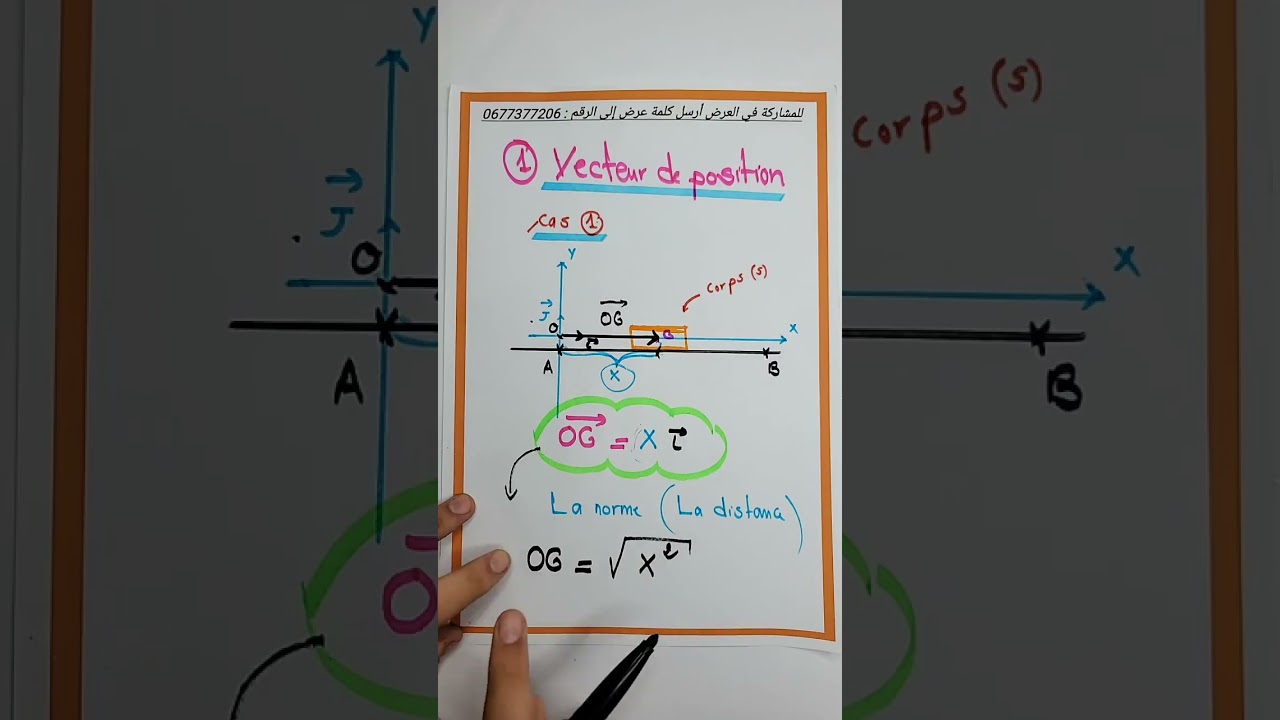 للمشاركة في العرض أرسل كلمة عرض إلى الرقم : 0677377206
① Vecteur de position
Cas ①
Y
Corps (s)
OG
J
O
G
X
A
X
B
OG = X
La norme (La distance)
OG = √X²
Y
Corps (s)
J
O
X
A
B